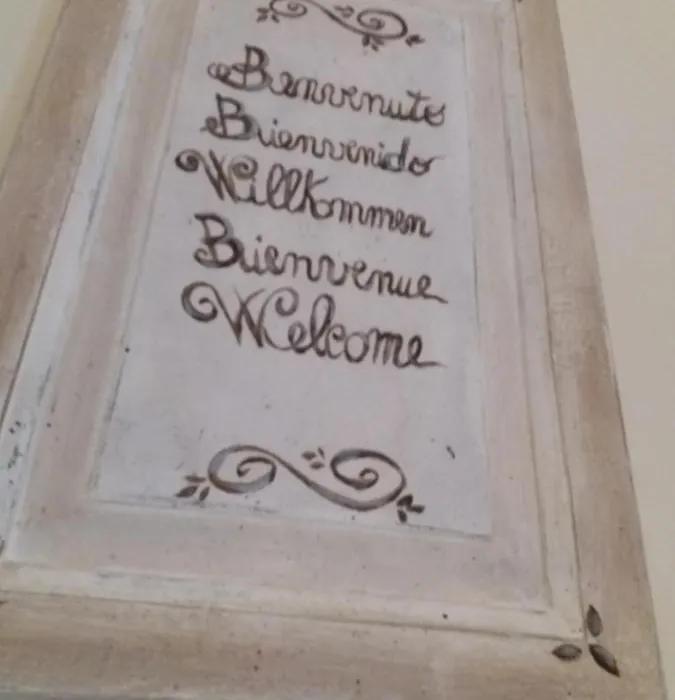 Benvenuto
Bienvenido
Willkommen
Bienvenue
Welcome